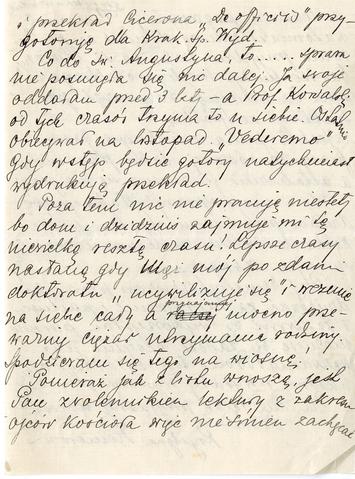 i przekład Cicerona „De officiis” przy-
gotowuję dla Krak. Sp. Wyd.
Co do św. Augustyna, to..... sprawa
nie posunęła się nic dalej. Ja swoje
oddałam przed 3 laty – a Prof. Kowalski
od tych czasów trzyma to u siebie. Ostatnio
obiecywał na listopad. „Vederemo”
gdy wstęp będzie gotowy natychmiast
wydrukują przekład.
Poza tem nic nie pracuję niestety
bo dom i dzidziuś zajmuje mi tę
niewielką resztę czasu. Lepsze czasy
nastaną gdy Mąż mój po zdaniu
doktoratu „ucywilizuje się” i weźmie
na siebie cały a przynajmniej mocno prze-
ważny ciężar utrzymania rodziny.
Spodziewam się tego na wiosnę!
Ponieważ jak z listu wnoszę, jest
Pan zwolennikiem lektury z zakresu
ojców Kościoła więc nie śmiem zachęcać